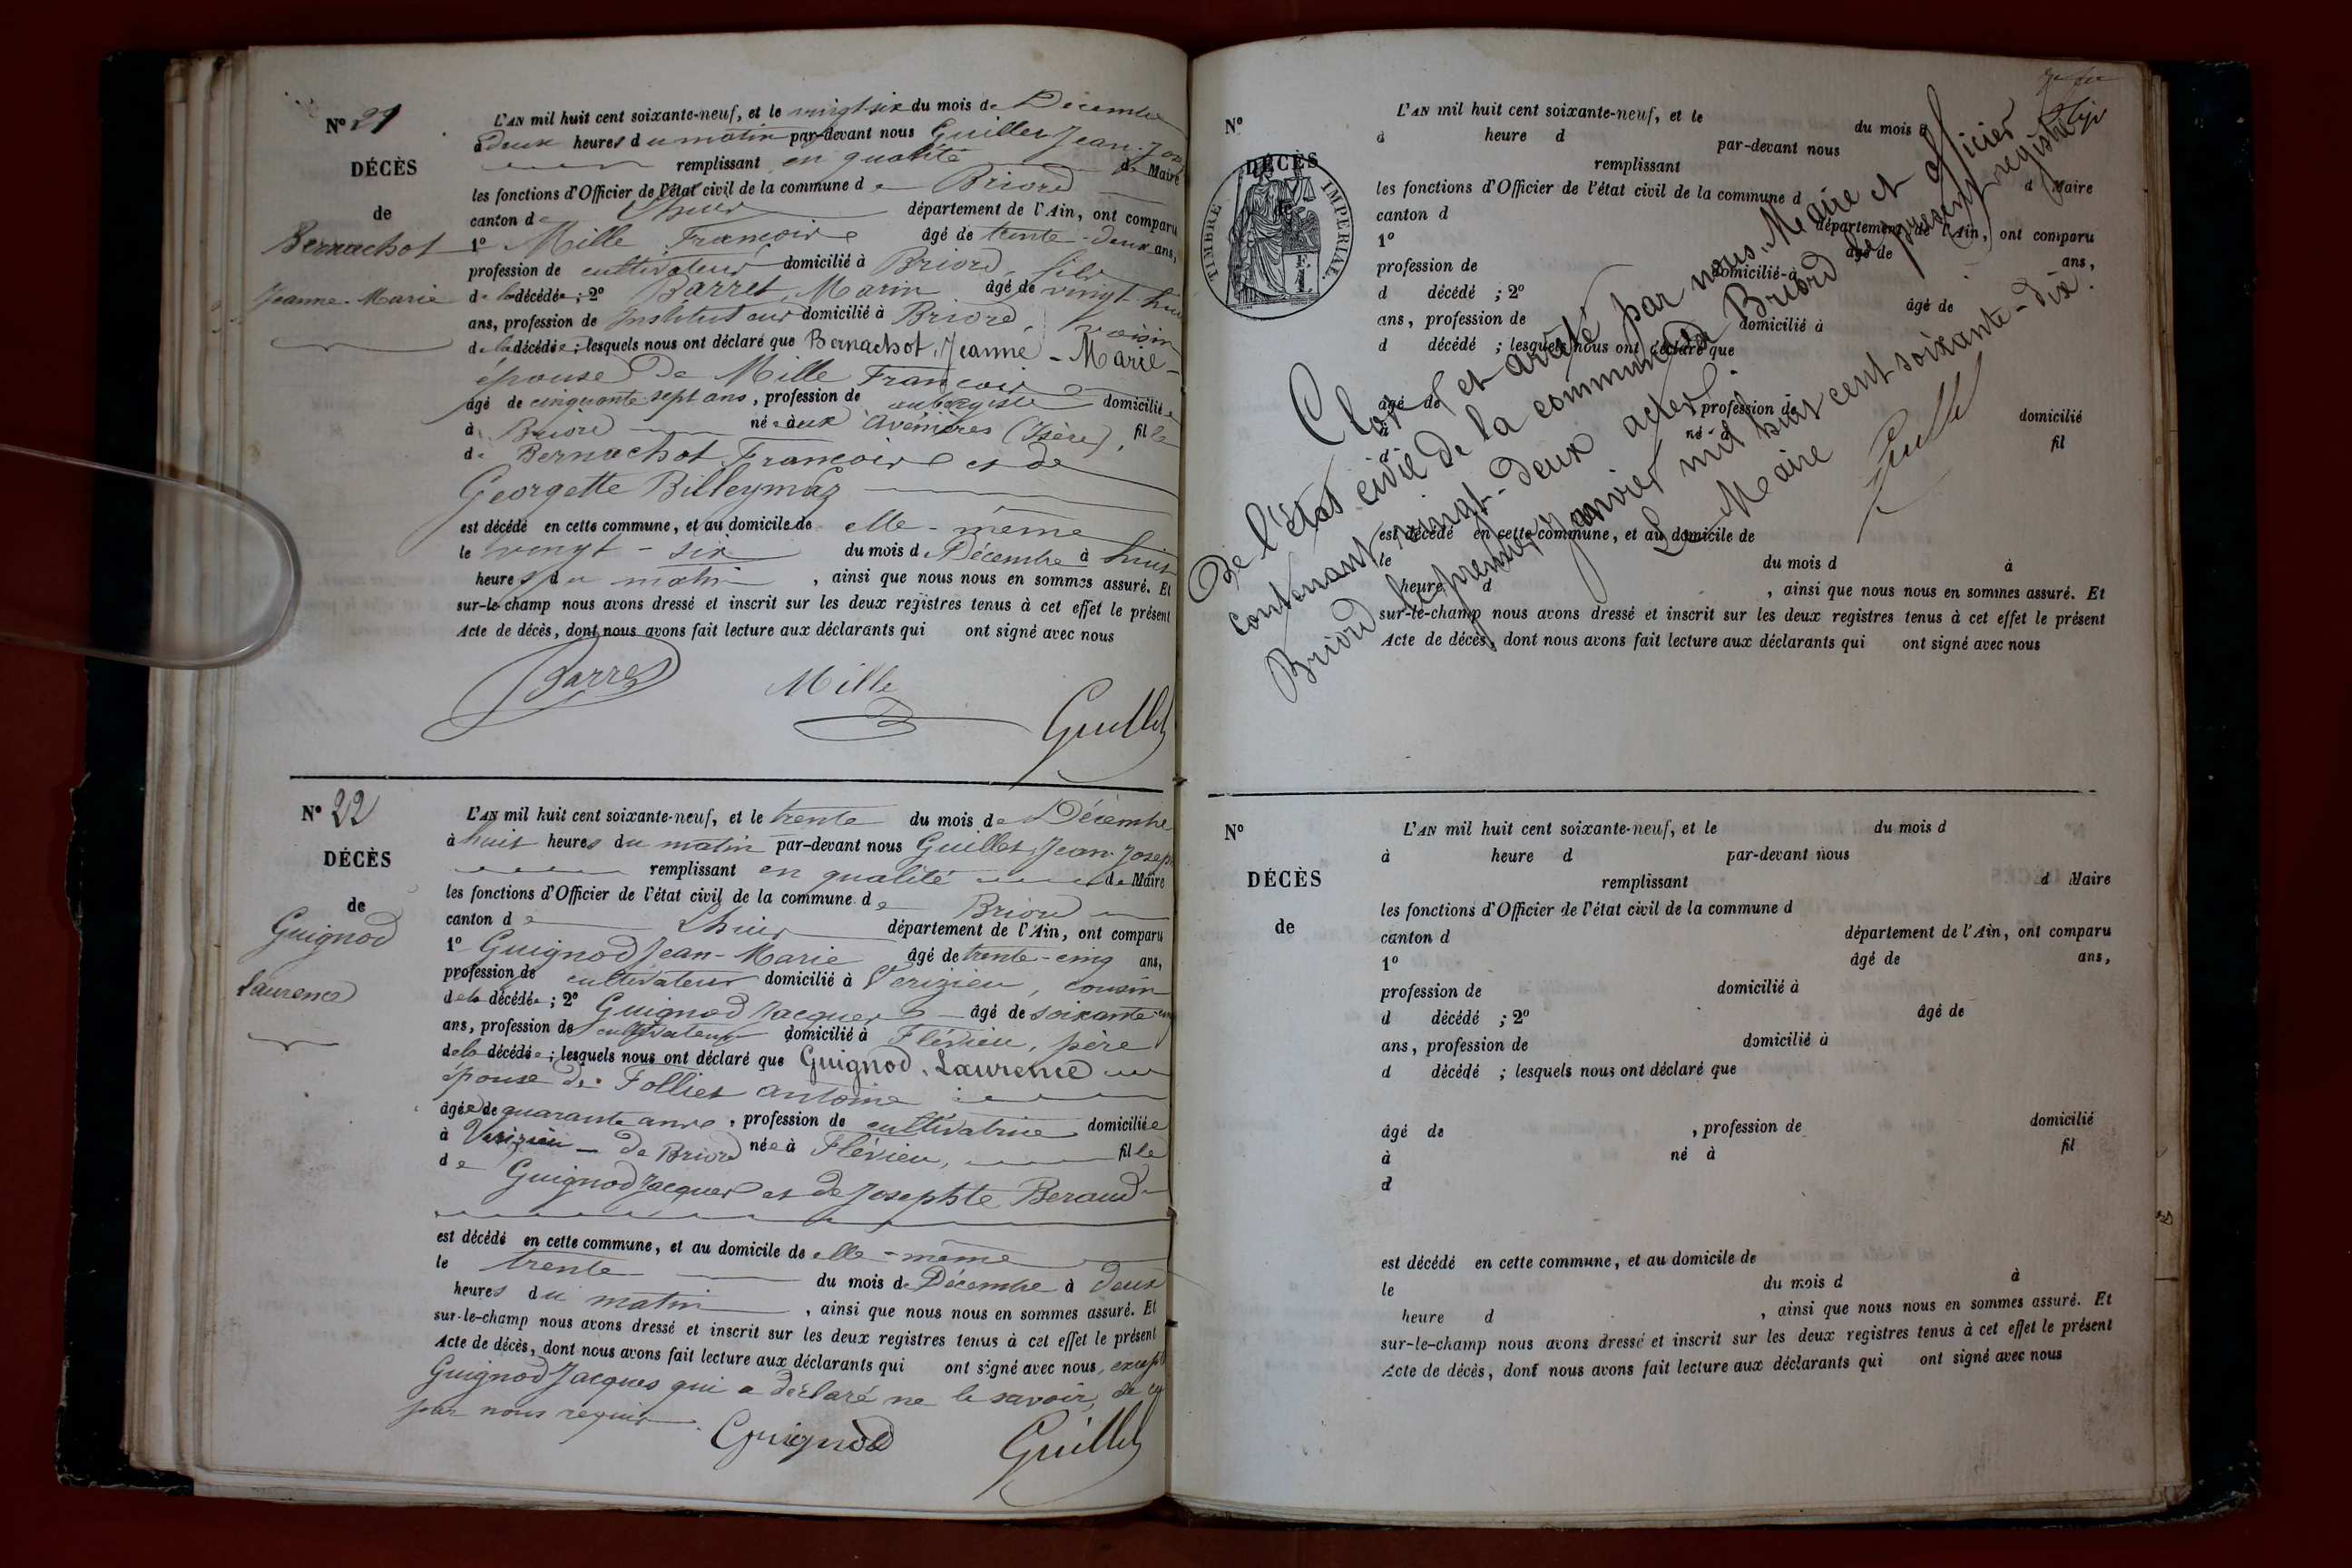 N° 21
DÉCÈS
de
Bernachot
Jeanne-Marie
L'AN mil huit cent soixante-neuf, et le vingt-six du mois de Décembre
à deux heures du matin par-devant nous Guillet Jean-Jos
remplissant en qualité de Maire
les fonctions d'Officier de l'état civil de la commune de Briord
canton de Lhuis département de l'Ain, ont comparu
1° Mille François âgé de trente-deux ans,
profession de cultivateur domicilié à Briord, fils
de la décédée ; 2° Barret, Marin âgé de vingt-huit
ans, profession de Instituteur domicilié à Briord, voisin
de la décédée ; lesquels nous ont déclaré que Bernachot, Jeanne-Marie-
épouse de Mille François
âgé de cinquante sept ans, profession de aubergiste domiciliée
à Briord née aux Avenières (Isère), fille
de Bernachot François et de
Georgette Billeymaz
est décédé en cette commune, et au domicile de elle-même
le vingt-six du mois de Décembre à huit
heures du matin, ainsi que nous nous en sommes assuré. Et
sur-le-champ nous avons dressé et inscrit sur les deux registres tenus à cet effet le présent
Acte de décès, dont nous avons fait lecture aux déclarants qui ont signé avec nous
Barret Mille Guillet
N° 22
DÉCÈS
de
Guignod
Laurence
L'AN mil huit cent soixante-neuf, et le trente du mois de Décembre
à huit heures du matin par-devant nous Guillet, Jean-Joseph
remplissant en qualité de Maire
les fonctions d'Officier de l'état civil de la commune de Briord
canton de Lhuis département de l'Ain, ont comparu
1° Guignod Jean-Marie âgé de trente-cinq ans,
profession de cultivateur domicilié à Verizieu, cousin
de la décédée ; 2° Guignod Jacques âgé de soixante
ans, profession de cultivateur domicilié à Flévieu, père
de la décédée ; lesquels nous ont déclaré que Guignod, Laurence
épouse de Folliet Antoine
âgée de quarante ans, profession de cultivatrice domiciliée
à Verizieu - de Briord née à Flévieu, fille
de Guignod Jacques et de Josephte Beraud
est décédé en cette commune, et au domicile de elle-même
le trente du mois de Décembre à deux
heures du matin, ainsi que nous nous en sommes assuré. Et
sur-le-champ nous avons dressé et inscrit sur les deux registres tenus à cet effet le présent
Acte de décès, dont nous avons fait lecture aux déclarants qui ont signé avec nous, excepté
Guignod Jacques qui a déclaré ne le savoir, de ce
par nous requis.
Guignod Guillet
N°
DÉCÈS
de
TIMBRE IMPERIAL
1 F.
L'AN mil huit cent soixante-neuf, et le du mois d
à heure d par-devant nous
remplissant d Maire
les fonctions d'Officier de l'état civil de la commune d
canton d département de l'Ain, ont comparu
1° âgé de ans,
profession de domicilié à
d décédé ; 2° âgé de
ans, profession de domicilié à
d décédé ; lesquels nous ont déclaré que
âgé de , profession de domicilié
à né à fil
d
est décédé en cette commune, et au domicile de
le du mois d à
heure d , ainsi que nous nous en sommes assuré. Et
sur-le-champ nous avons dressé et inscrit sur les deux registres tenus à cet effet le présent
Acte de décès, dont nous avons fait lecture aux déclarants qui ont signé avec nous
Clos et arrêté par nous, Maire et officier
De l'état civil de la commune de Briord le présent registre
contenant vingt-deux actes.
Briord le premier janvier mil huit cent soixante-dix.
Le Maire
Guillet
N°
DÉCÈS
de
L'AN mil huit cent soixante-neuf, et le du mois d
à heure d par-devant nous
remplissant d Maire
les fonctions d'Officier de l'état civil de la commune d
canton d département de l'Ain, ont comparu
1° âgé de ans,
profession de domicilié à
d décédé ; 2° âgé de
ans, profession de domicilié à
d décédé ; lesquels nous ont déclaré que
âgé de , profession de domicilié
à né à fil
d
est décédé en cette commune, et au domicile de
le du mois d à
heure d , ainsi que nous nous en sommes assuré. Et
sur-le-champ nous avons dressé et inscrit sur les deux registres tenus à cet effet le présent
Acte de décès, dont nous avons fait lecture aux déclarants qui ont signé avec nous